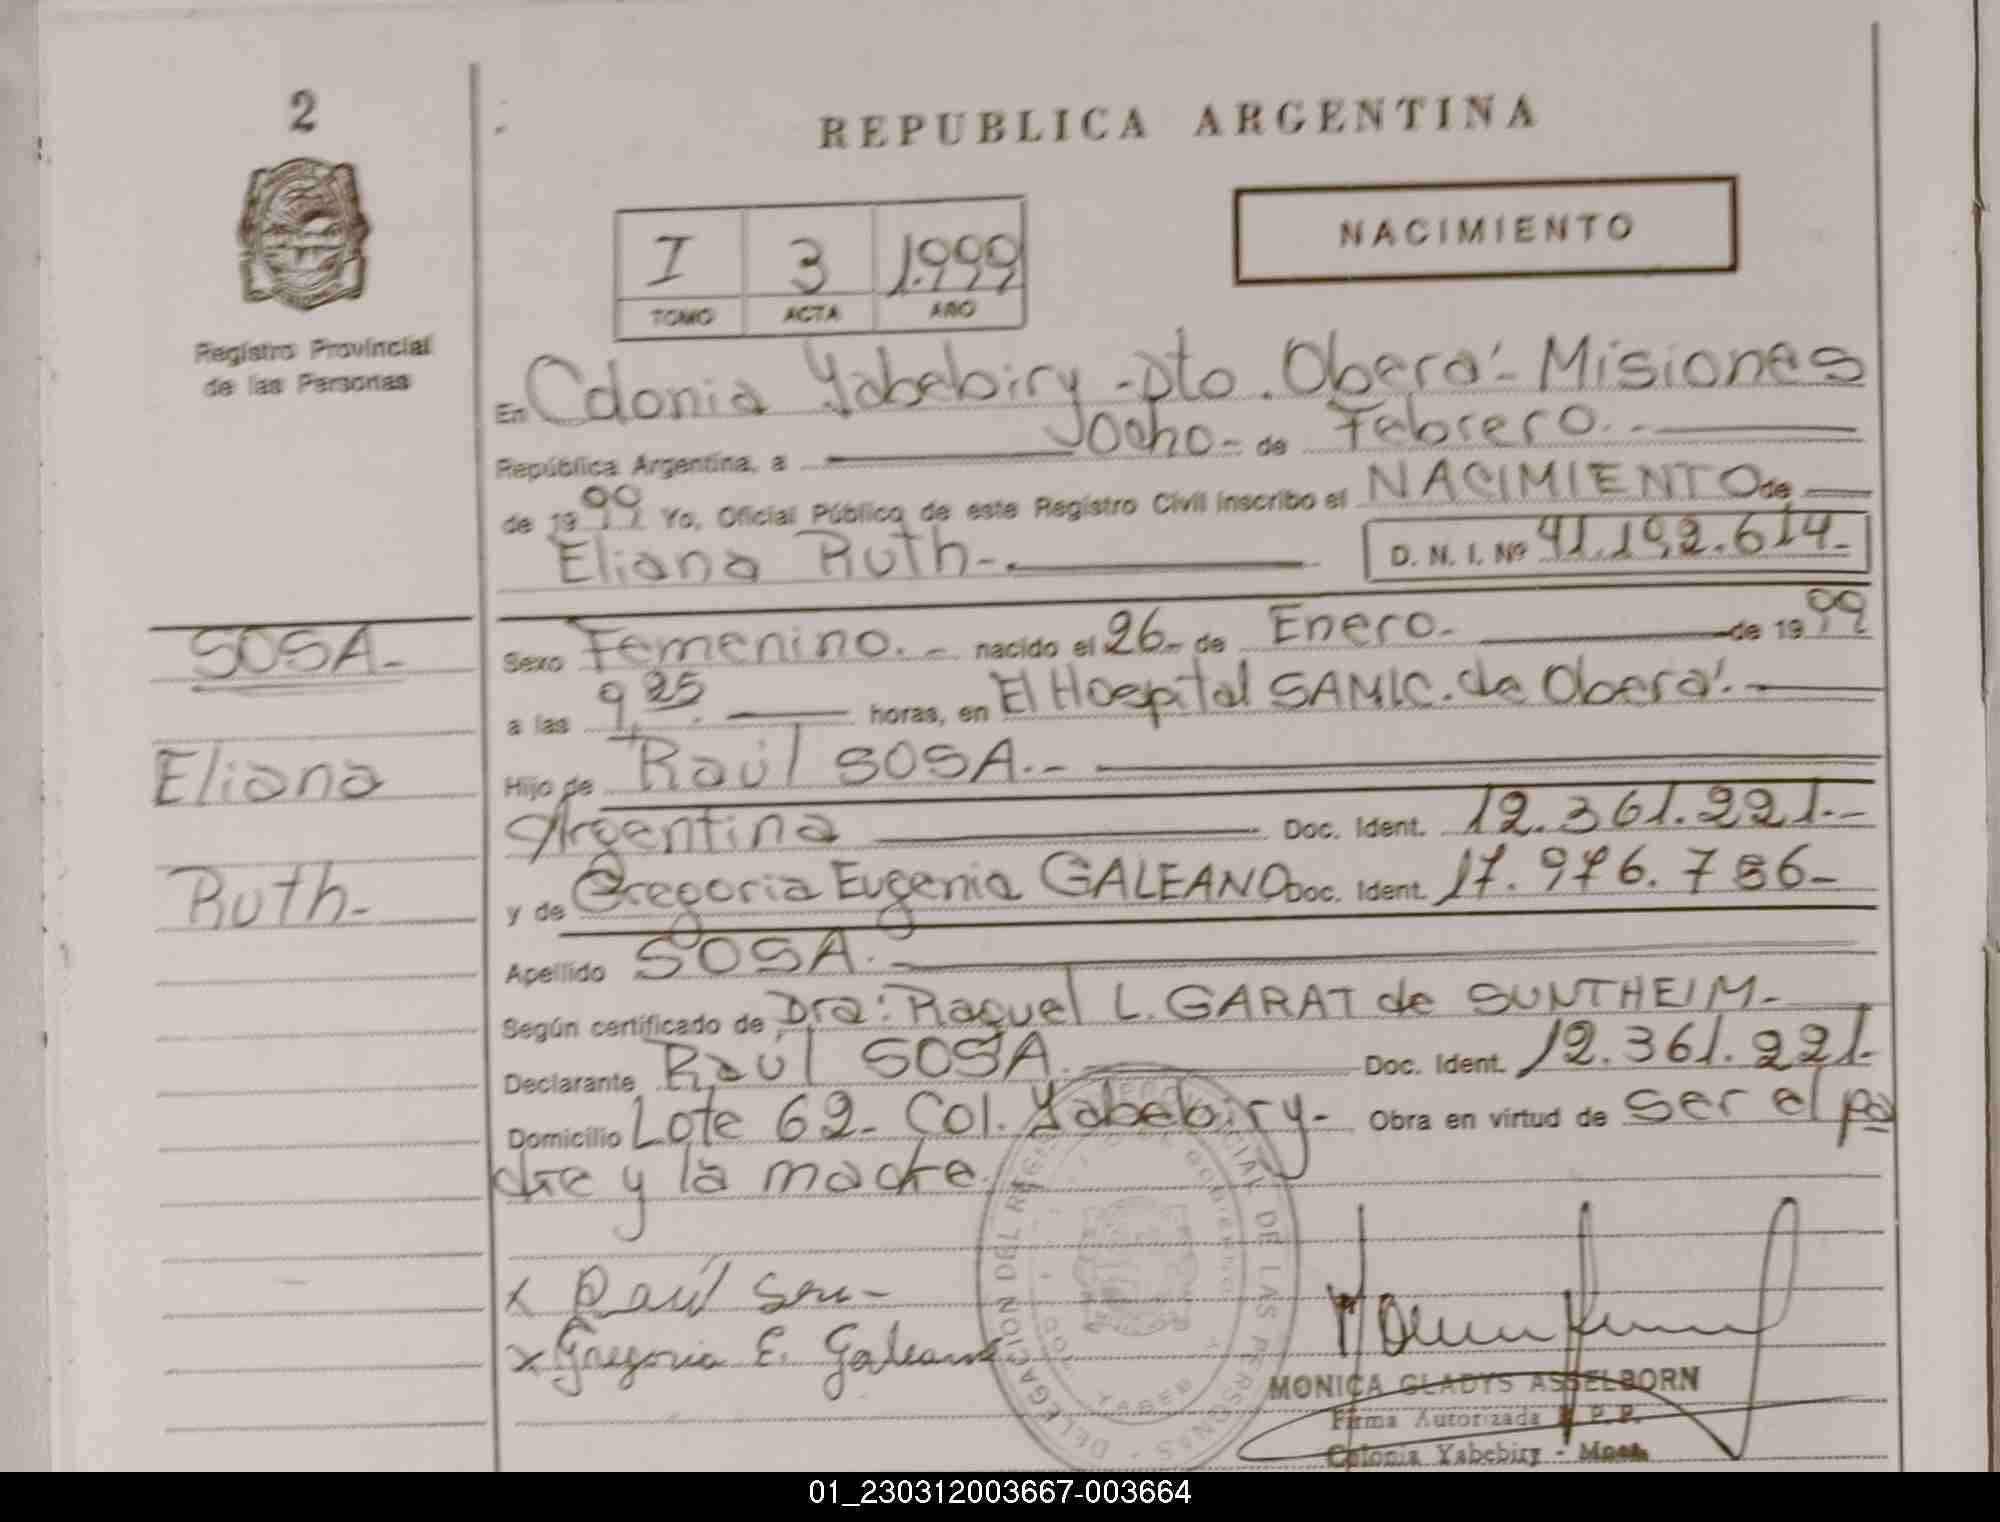 2
REPUBLICA ARGENTINA
NACIMIENTO
I 3 1.999
TOMO ACTA AÑO
Registro Provincial
de las Personas
En Colonia Yabebiry - Dto. Oberá - Misiones
República Argentina, a Ocho - de Febrero.-
de 1999 Yo, Oficial Público de este Registro Civil inscribo el NACIMIENTO de
Eliana Ruth-. D. N. I. Nº 41.192.614-
SOSA-
Sexo Femenino.- nacido el 26- de Enero- de 1999
a las 9,25. horas, en El Hospital SAMIC. de Oberá.-
Eliana
Hijo de Raúl SOSA.-
Argentina Doc. Ident. 12.361.221.-
Ruth-
y de Gregoria Eugenia GALEANO Doc. Ident. 17.976.786-
Apellido SOSA.-
Según certificado de Dra: Raquel L. GARAT de SUNTHEIM-
Declarante Raúl SOSA. Doc. Ident. 12.361.221-
Domicilio Lote 62- Col. Yabebiry- Obra en virtud de ser el pa
dre y la madre.
x Raúl Sosa-
x Gregoria E. Galeano
DELEGACION DEL REGISTRO PROVINCIAL DE LAS PERSONAS -
MONICA GLADYS ASSELBORN
Firma Autorizada R. P. P.
Colonia Yabebiry - Mnes.
01_230312003667-003664